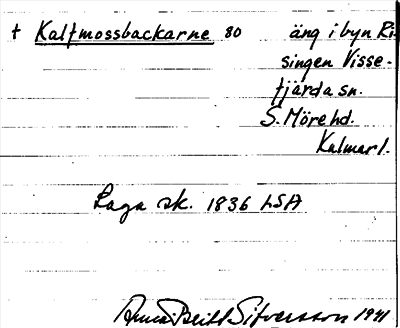 † Kalfmossbackarne 80 äng i byn Ri-
singen Visse-
fjärda sn.
S. Möre hd.
Kalmar l.
Laga sk. 1836 LSA
Anna-Britt Sifversson 1941